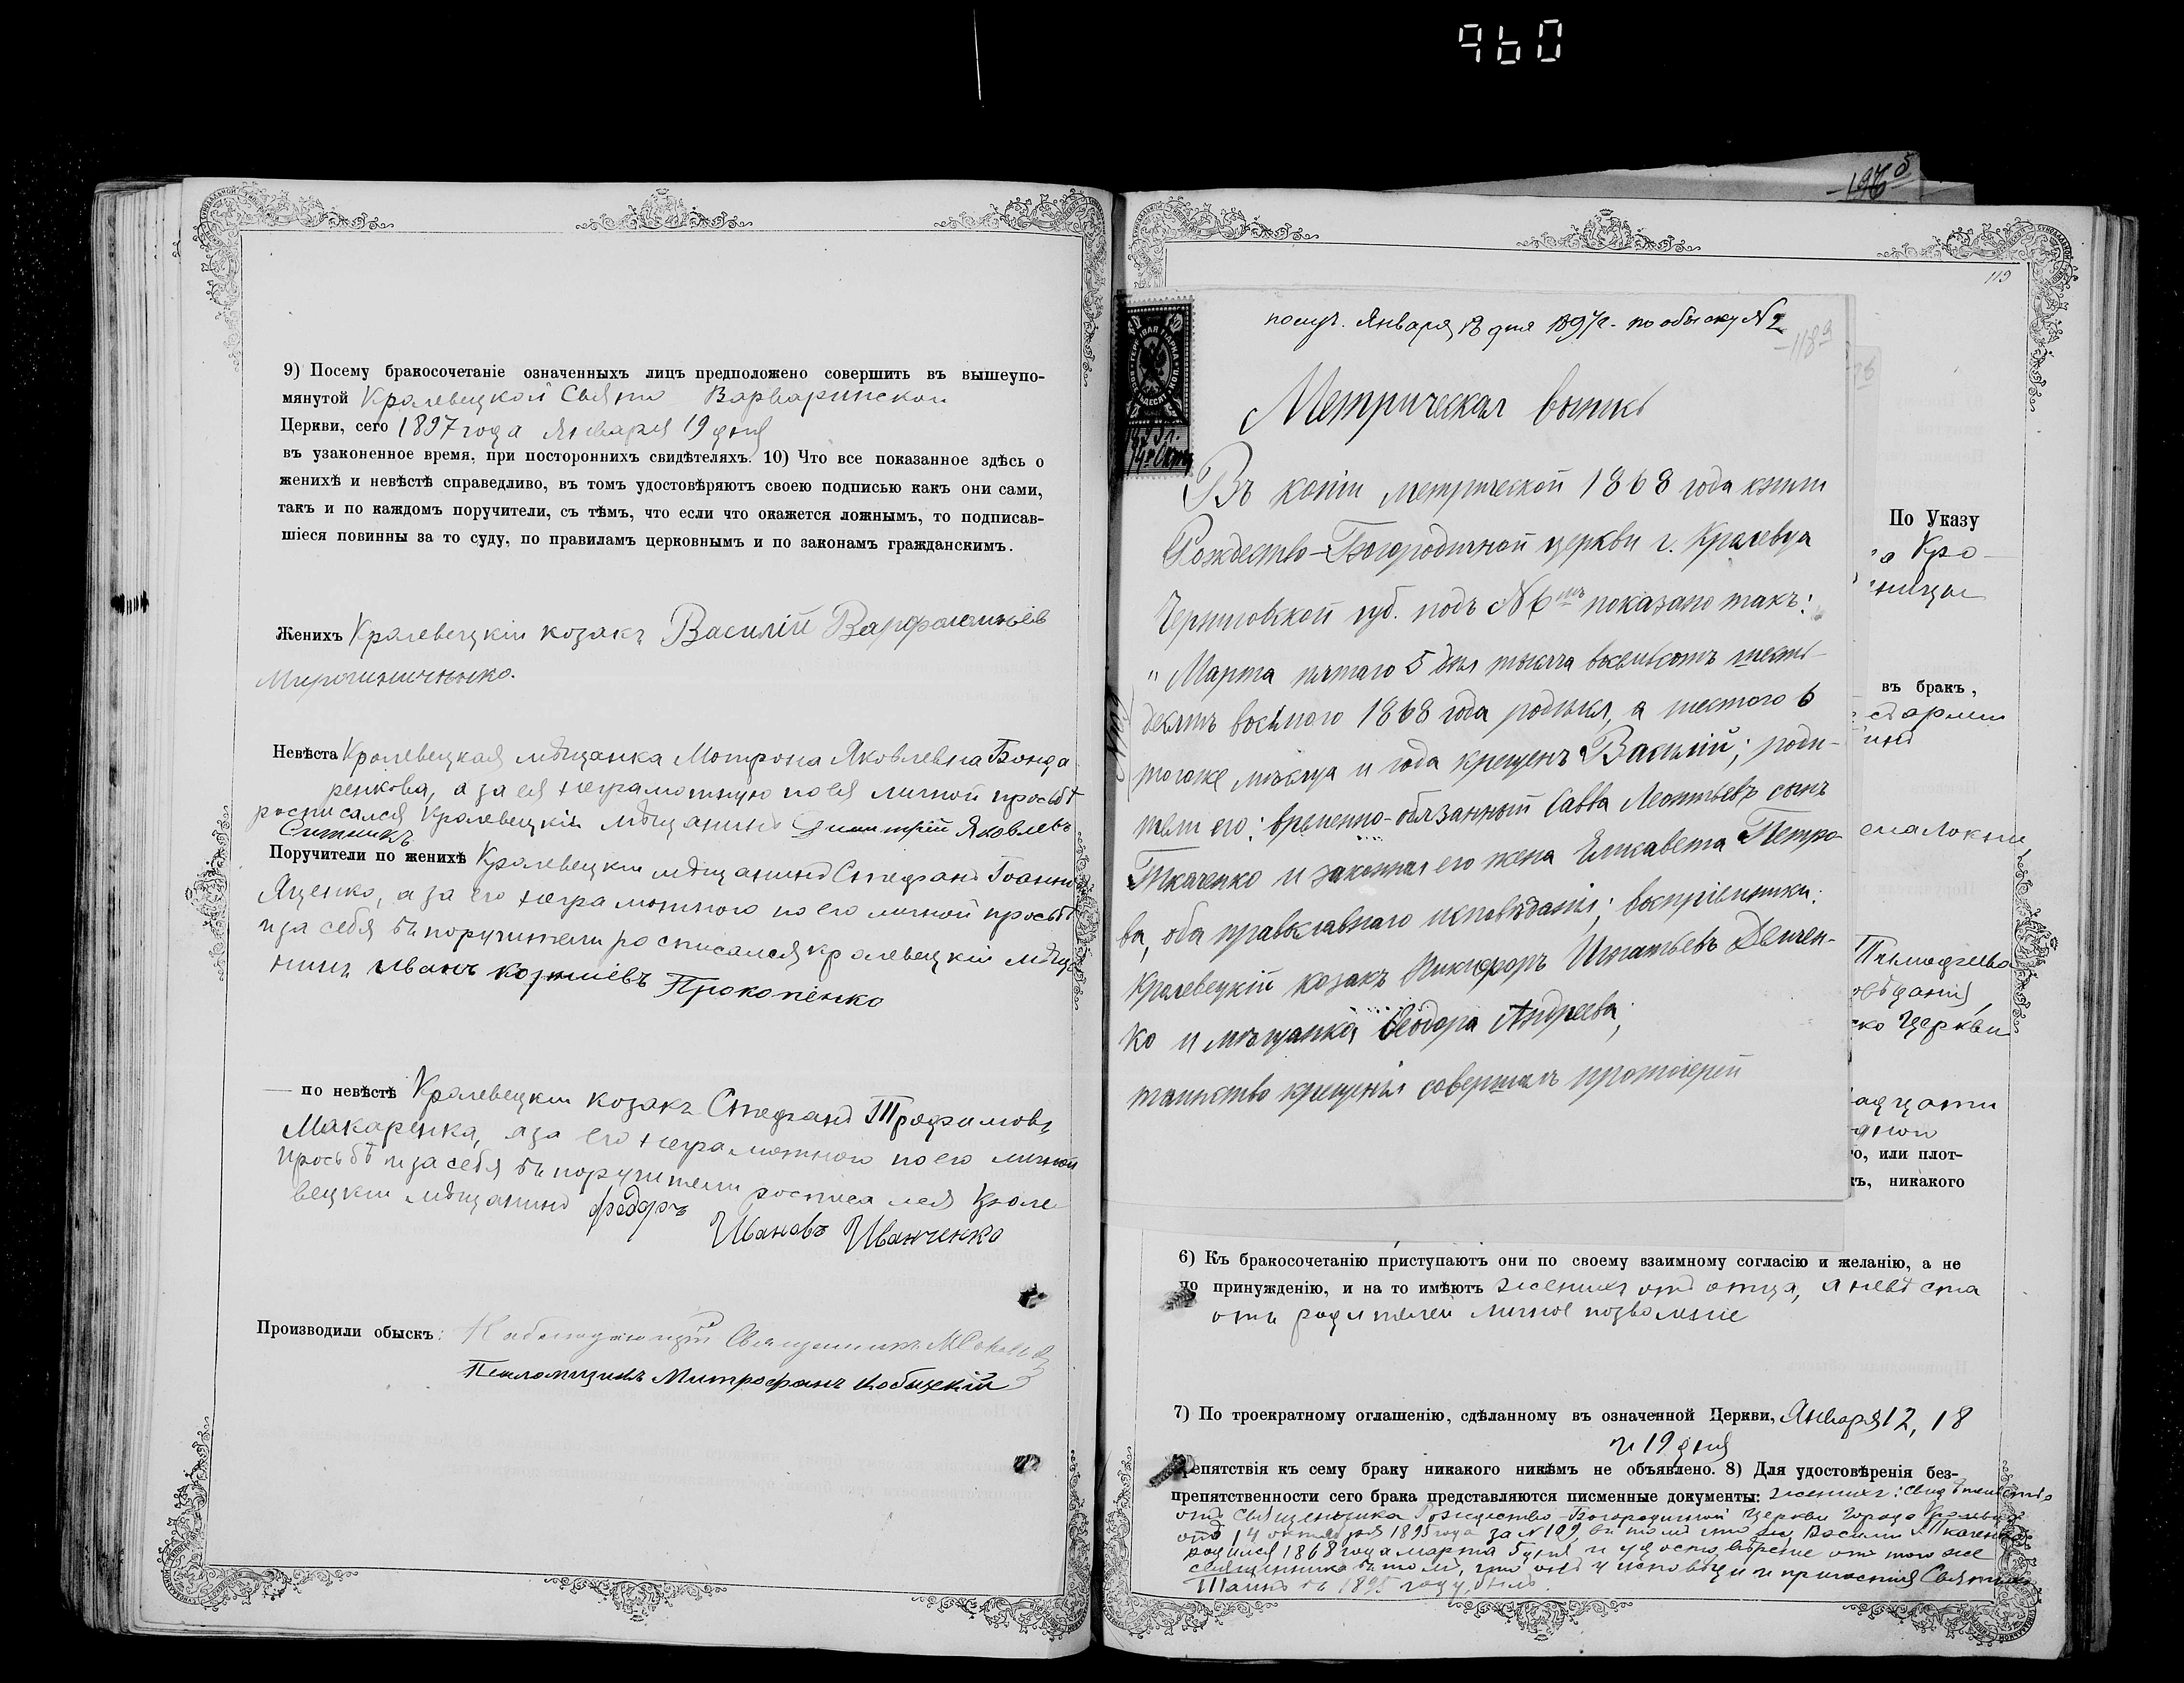 960
9) Посему бракосочетаніе означенныхъ лицъ предположено совершить въ вышеупо-
мянутой Кролевецкой Свято Варваринской
Церкви, сего 1897 года Января 19 дня
въ узаконенное время, при постороннихъ свидѣтеляхъ. 10) Что все показанное здѣсь о
женихѣ и невѣстѣ справедливо, въ томъ удостовѣряютъ своею подписью какъ они сами,
такъ и по каждомъ поручители, съ тѣмъ, что если что окажется ложнымъ, то подписав-
шіеся повинны за то суду, по правиламъ церковнымъ и по законамъ гражданскимъ.
Женихъ Кролевецкій козакъ Василій Варфоломеевъ
Мирошниченко.
Невѣста Кролевецкая мѣщанка Мотрона Яковлевна Бонда
ренкова, а за ея неграмотную по ея личной просьбѣ
росписался Кролевецкій мѣщанинъ Димитрій Яковлевъ
Ситникъ
Поручители по женихѣ Кролевецкій мѣщанинъ Стефанъ Іоанновъ
Яценко, а за его неграмотного по его личной просьбѣ
и за себя въ поручители росписался кролевецкій мѣща
нинъ Иванъ Козмиевъ Прокопенко
по невѣстѣ Кролевецкій козакъ Стефанъ Трофимовъ
Макаренко, а за его неграмотного по его личной
просьбѣ и за себя въ поручители росписался Кроле
вецкій мѣщанинъ Федоръ
Ивановъ Иванченко
Производили обыскъ: Священникъ
Псаломщикъ Митрофанъ
196
119
118
получ. Января 18 дня 1897 г. по обыску № 2
1895 г.
14 Окт.
Метрическая выпись
Въ копіи метрической 1868 года книги
Рождество-Богородичной церкви г. Кролевца
Черниговской губ. подъ № 6мъ показано такъ:
"Марта пятаго 5 дня тысяча восемьсотъ шесть-
десятъ восьмого 1868 года родился, а шестого 6
тогоже мѣсяца и года крещенъ Василій; роди-
тели его: временно-обязанный Савва Леонтьевъ сынъ
Ткаченко и законная его жена Елисавета Петро-
ва, оба православнаго исповѣданія; воспріемники:
Кролевецкій козакъ Никифоръ Игнатьевъ Демчен-
ко и мѣщанка Ѳеодора Андреева;
таинство крещенія совершалъ протоіерей
По Указу
Кро-
въ бракъ,
Церкви
о, или плот-
никакого
6) Къ бракосочетанію приступаютъ они по своему взаимному согласію и желанію, а не
по принужденію, и на то имѣютъ женихъ отъ отца, а невѣста
отъ родителей личное позволеніе
7) По троекратному оглашенію, сдѣланному въ означенной Церкви, Января 12, 18
и 19 дня
препятствія къ сему браку никакого никѣмъ не объявлено. 8) Для удостовѣренія без-
препятственности сего брака представляются писменные документы: женихъ: свидѣтельство
отъ священника Рождество-Богородичной Церкви города Кролевца
отъ 14 октября 1895 года за № 199, въ томъ что Василій Ткаченко
родился 1868 года марта 5 дня и удостовѣреніе отъ того же
священника въ томъ, что онъ у исповѣди и причастія Святыхъ
Таинъ въ 1895 году былъ.